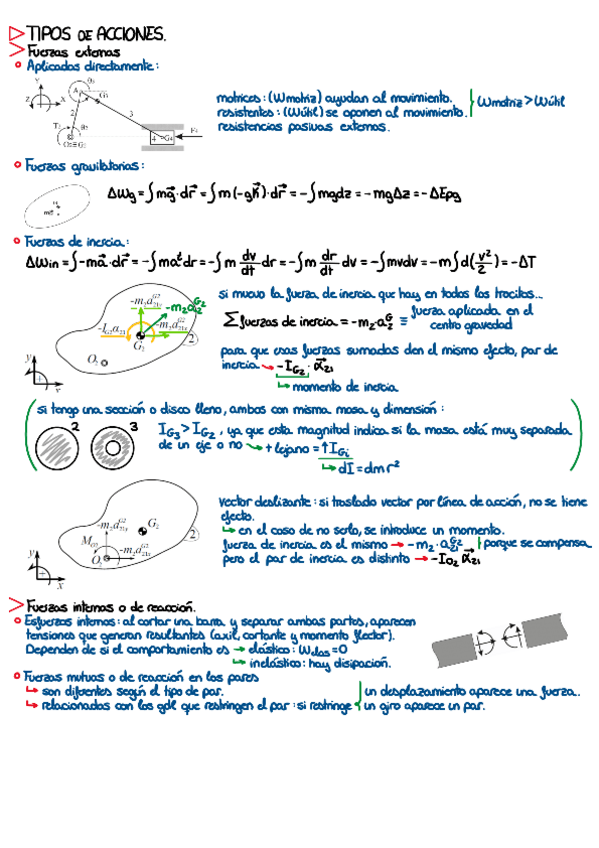 TIPOS DE ACCIONES.
Fuerzas externas
Aplicadas directamente:
motrices: (Wmotriz) ayudan al movimiento.
resistentes: (Wútil) se oponen al movimiento. Wmotriz > Wútil
resistencias pasivas externas.
Fuerzas gravitatorias:
ΔWg = ∫m g⃗·dr⃗ = ∫m(-gk⃗)·dr⃗ = -∫mgdz = -mgΔz = -ΔEpg
Fuerzas de inercia:
ΔWin = ∫-ma⃗·dr⃗ = -∫maᵗdr = -∫m dv/dt dr = -∫m dr/dt dv = -∫mvdv = -m∫d(v²/2) = -ΔT
si muevo la fuerza de inercia que hay en todos los trocitos...
∑fuerzas de inercia = -m₂·a₂ᴳ ≡ fuerza aplicada en el centro gravedad
para que esas fuerzas sumadas den el mismo efecto, par de
inercia → -I_G2 · α⃗₂₁
momento de inercia
si tengo una sección o disco lleno, ambos con misma masa y dimensión:
2 3
I_G3 > I_G2, ya que esta magnitud indica si la masa está muy separada
de un eje o no → + lejano = ↑I_Gi
dI = dm r²
vector deslizante: si traslado vector por línea de acción, no se tiene
efecto.
en el caso de no serlo, se introduce un momento.
fuerza de inercia es el mismo → -m₂·a₂₁ᴳ² porque se compensa
pero el par de inercia es distinto → -I_O2 α⃗₂₁
Fuerzas internas o de reacción.
Esfuerzos internos: al cortar una barra y separar ambas partes, aparecen
tensiones que generan resultantes (axil, cortante y momento flector).
Dependen de si el comportamiento es → elástico: Welas = 0
inelástico: hay disipación.
Fuerzas mutuas o de reacción en los pares
son diferentes según el tipo de par.
relacionadas con los gdl que restringen el par: si restringe
un desplazamiento aparece una fuerza.
un giro aparece un par.